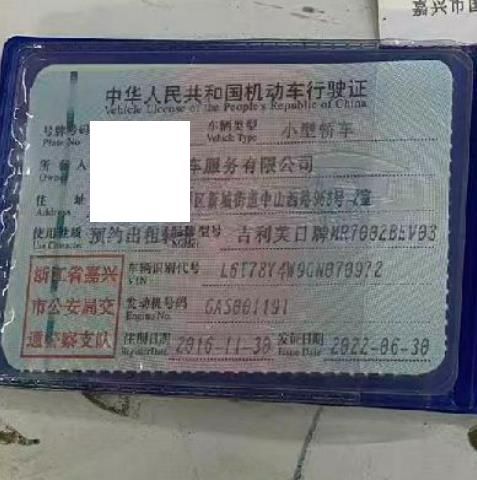 嘉兴市
中华人民共和国机动车行驶证
Vehicle License of the People's Republic of China
号牌号码 车辆类型 小型轿车
Plate No Vehicle Type
所有人 车服务有限公司
Owner
住址 区新城街道中山西路968号-2室
Address
使用性质 预约出租 品牌型号 吉利美日牌MR7002BEV03
Use Character Model
浙江省嘉兴 车辆识别代号 L6T78Y4W9GN070972
VIN
市公安局交 发动机号码 GAS001191
Engine No.
通警察支队 注册日期 2016-11-30 发证日期 2022-06-30
Register Date Issue Date